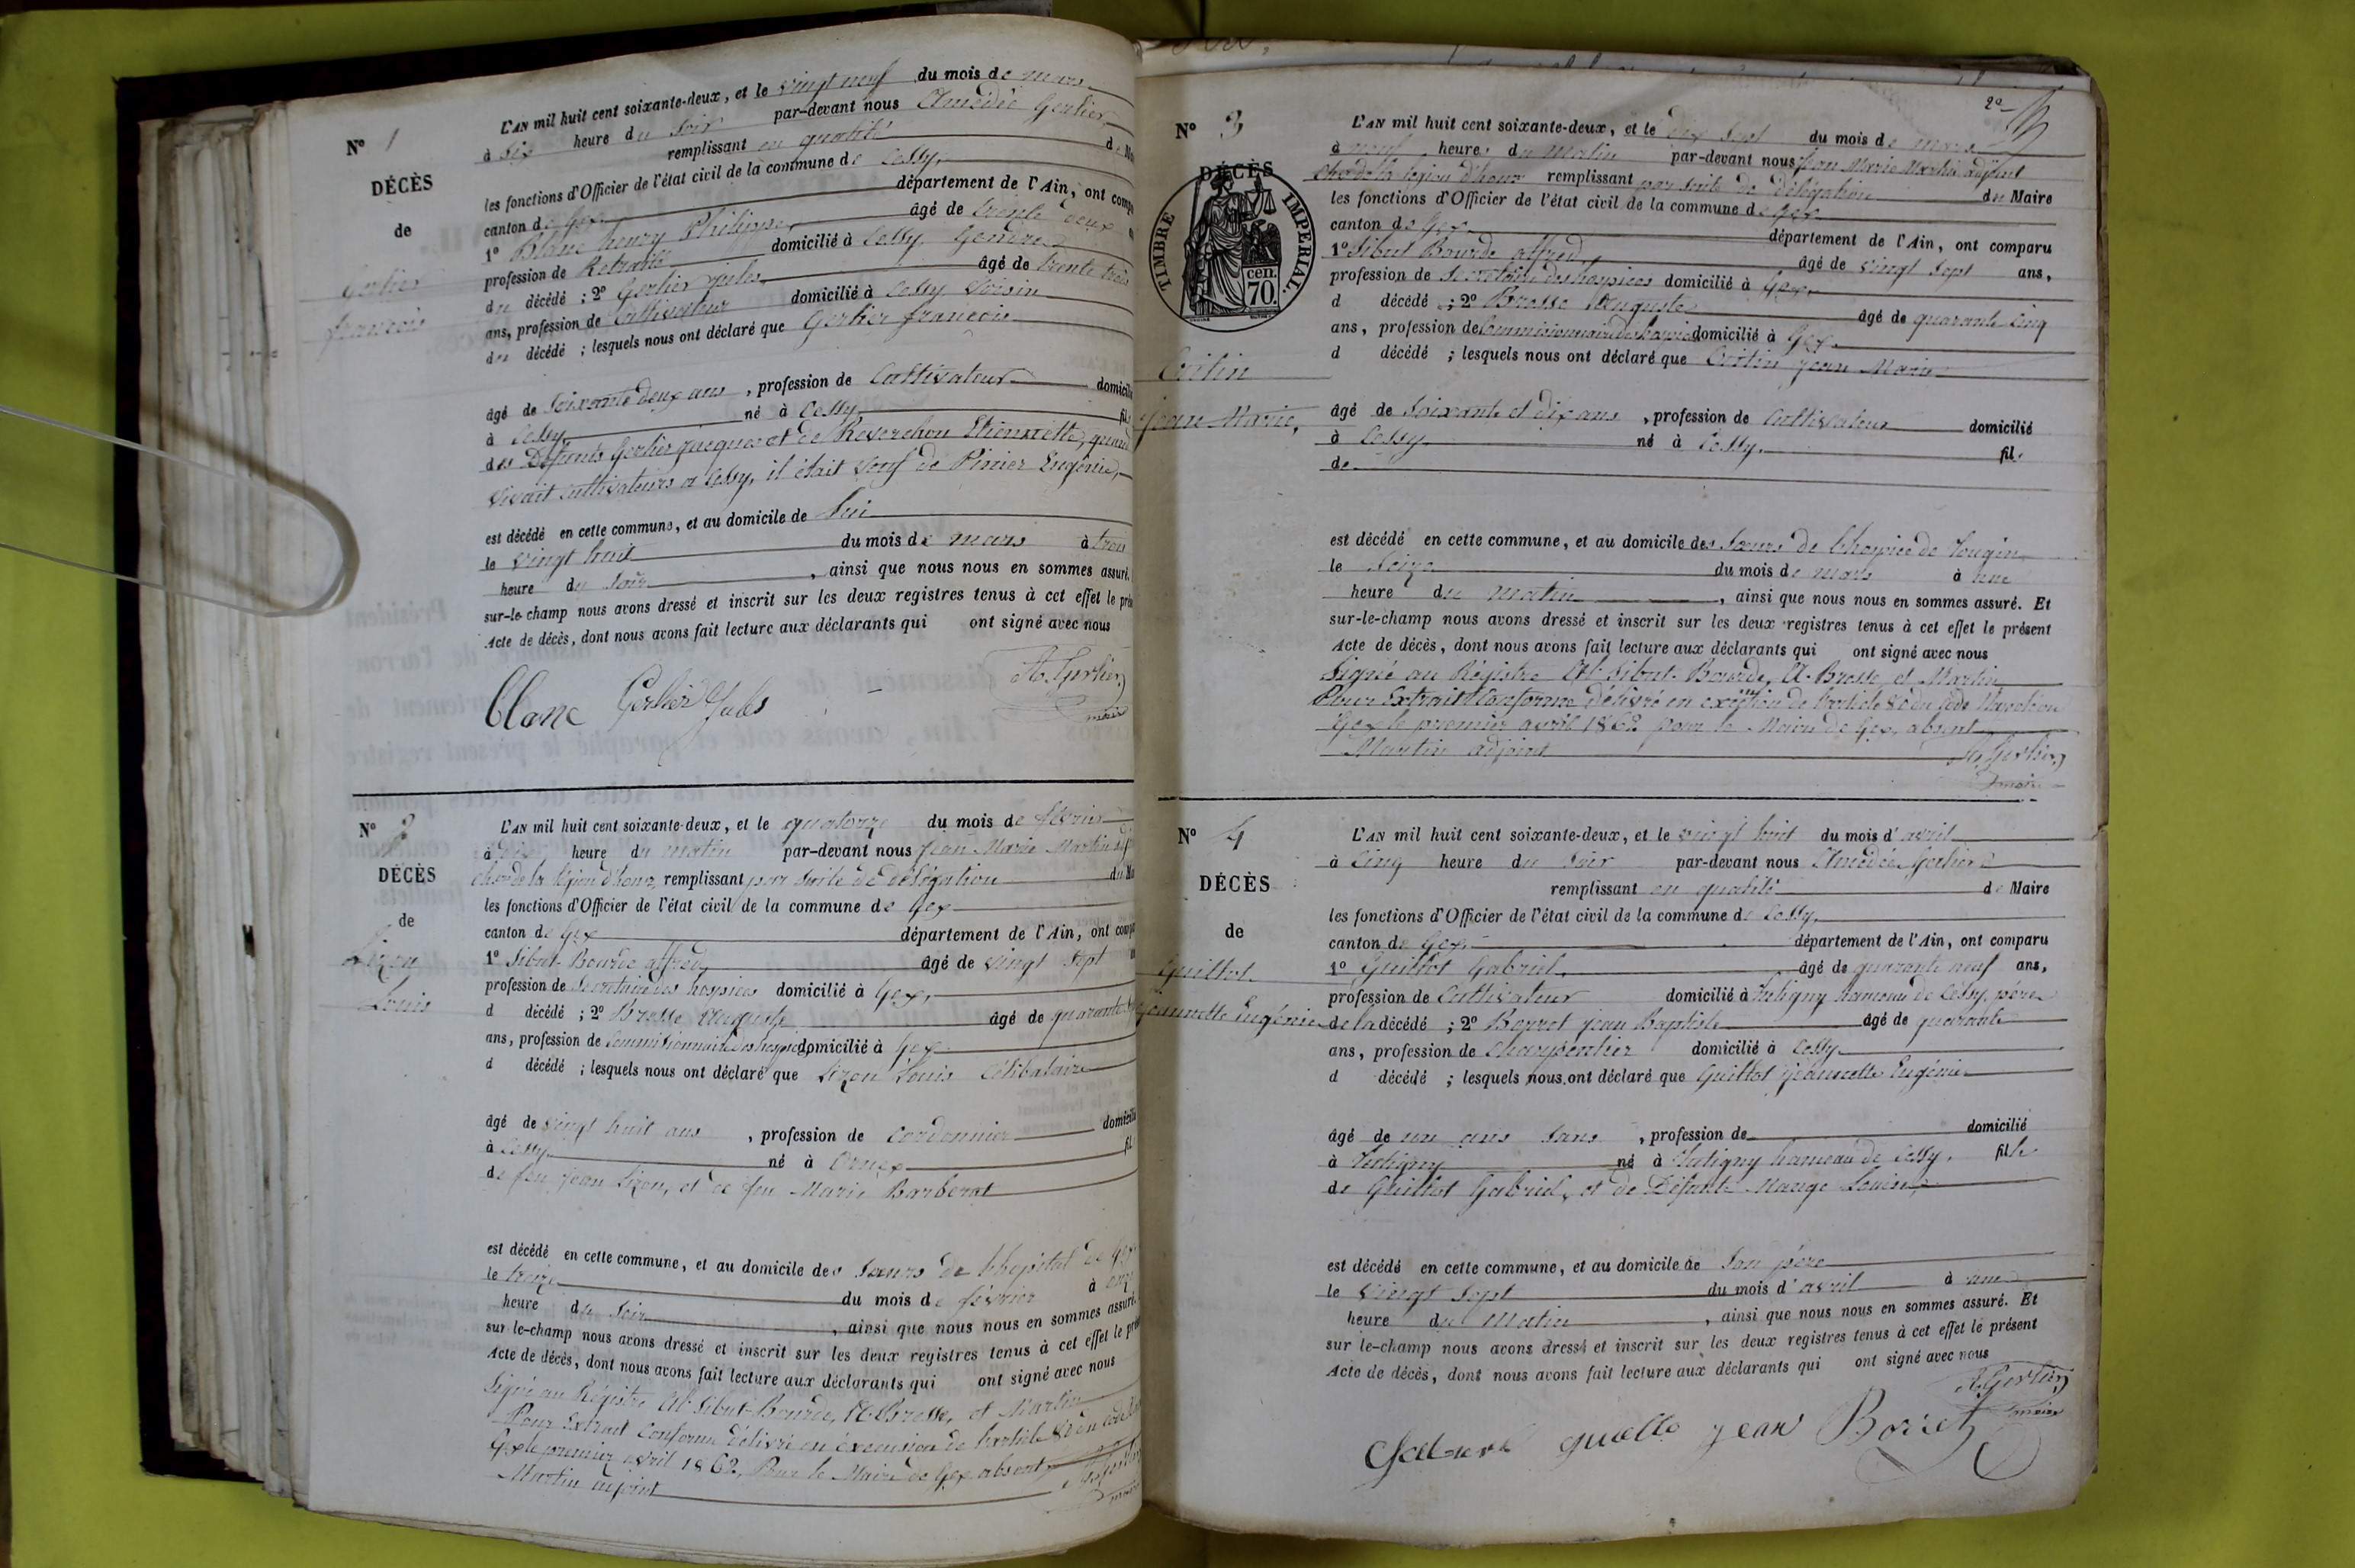 N° 1
DÉCÈS
de
Gerlier
françois
L'AN mil huit cent soixante-deux, et le vingt neuf du mois de mars
à six heure du soir par-devant nous Amédée Gerlier
remplissant en qualité de
les fonctions d'Officier de l'état civil de la commune de Cessy,
canton de Gex département de l'Ain, ont comp
1° Blanc henry Philippe, âgé de trente deux
profession de Retraité domicilié à Cessy Gendre
du décédé ; 2° Gerlier jules, âgé de trente trois
ans, profession de Cultivateur domicilié à Cessy Voisin
du décédé ; lesquels nous ont déclaré que Gerlier francois
âgé de soixante deux ans , profession de Cultivateur domicil
à Cessy né à Cessy fil
des Défunts Gerlier jacques et de Reverchon Etiennette, quand
vivait cultivateurs a Cessy, il était veuf de Pinier Eugénie,
est décédé en cette commune, et au domicile de lui
le vingt huit du mois de mars à trois
heure du soir , ainsi que nous nous en sommes assuré.
sur-le-champ nous avons dressé et inscrit sur les deux registres tenus à cet effet le pré
Acte de décès, dont nous avons fait lecture aux déclarants qui ont signé avec nous
Blanc Gerlier Jules A. Gerlier
maire
N° 2
DÉCÈS
de
Lizon
Louis
L'AN mil huit cent soixante-deux, et le quatorze du mois de février
à dix heure du matin par-devant nous Jean Marie Martin
cher de la légion d'honr, remplissant par suite de délégation du
les fonctions d'Officier de l'état civil de la commune de Gex
canton de Gex département de l'Ain, ont comp
1° Sibut-Bourde alfred, âgé de vingt sept
profession de Secrétaire des hospices domicilié à Gex,
d décédé ; 2° Brosse Auguste âgé de quarante
ans, profession de Commissionnaire des hospices domicilié à Gex
d décédé ; lesquels nous ont déclaré que Lizon Louis Célibataire
âgé de vingt huit ans , profession de Cordonnier domicili
à Cessy né à Ornex fil
de feu jean Lizon, et de feu Marie Barberat
est décédé en cette commune, et au domicile des Sœurs de l'hopital de Gex
le treize du mois de février à onze
heure du soir , ainsi que nous nous en sommes assuré.
sur le-champ nous avons dressé et inscrit sur les deux registres tenus à cet effet le pré
Acte de décès, dont nous avons fait lecture aux déclarants qui ont signé avec nous
Signé au Régistre Al. Sibut-Bourde, A. Brosse, et Martin
Pour Extrait Conforme délivré en éxecusion de l'article 80 du code
Gex le premier avril 1862, Pour le Maire de Gex absent
Martin adjoint
2e
N° 3
DÉCÈS
TIMBRE IMPERIAL.
70. cen.
Coitin
jean Marie,
L'AN mil huit cent soixante-deux, et le dix sept du mois de mars
à neuf heures du matin par-devant nous Jean Marie Martin adjoint
cher de la légion d'honr remplissant par suite de délégation du Maire
les fonctions d'Officier de l'état civil de la commune de Gex
canton de Gex département de l'Ain, ont comparu
1° Sibut Bourde alfred, âgé de vingt sept ans,
profession de Secrétaire des hospices domicilié à Gex,
d décédé ; 2° Brosse Auguste âgé de quarante cinq
ans, profession de Commissionnaire des hospices domicilié à Gex,
d décédé ; lesquels nous ont déclaré que Coitin jean Marie
âgé de soixante et dix ans , profession de Cultivateur domicilié
à Cessy né à Cessy, fils
de
est décédé en cette commune, et au domicile des Sœurs de l'hospice de Tougin
le seize du mois de mars à une
heure du matin , ainsi que nous nous en sommes assuré. Et
sur-le-champ nous avons dressé et inscrit sur les deux registres tenus à cet effet le présent
Acte de décès, dont nous avons fait lecture aux déclarants qui ont signé avec nous
Signé au Régistre Al. Sibut-Bourde, A. Brosse, et Martin
Pour Extrait Conforme délivré en exécution de l'article 80 du Code Napoléon
Gex le premier avril 1862 pour le Maire de Gex, absent
Martin adjoint A. Gerlier
maire
N° 4
DÉCÈS
de
Guillot
jeannette Eugénie
L'AN mil huit cent soixante-deux, et le vingt huit du mois d'avril
à cinq heure du soir par-devant nous Amédée Gerlier
remplissant en qualité de Maire
les fonctions d'Officier de l'état civil de la commune de Cessy,
canton de Gex, département de l'Ain, ont comparu
1° Guillot Gabriel, âgé de quarante neuf ans,
profession de Cultivateur domicilié à hameau de Cessy, père
de la décédé ; 2° Borret jean Baptiste âgé de quarante
ans, profession de Charpentier domicilié à Cessy
d décédé ; lesquels nous ont déclaré que Guillot jeannette Eugénie
âgé de un ans sans , profession de domicilié
à né à hameau de Cessy, fille
de Guillot Gabriel, et de Défunte Mange Louise,
est décédé en cette commune, et au domicile de son père
le vingt sept du mois d'avril à une
heure du Matin , ainsi que nous nous en sommes assuré. Et
sur le-champ nous avons dressé et inscrit sur les deux registres tenus à cet effet le présent
Acte de décès, dont nous avons fait lecture aux déclarants qui ont signé avec nous
A. Gerlier
maire
jean Borret